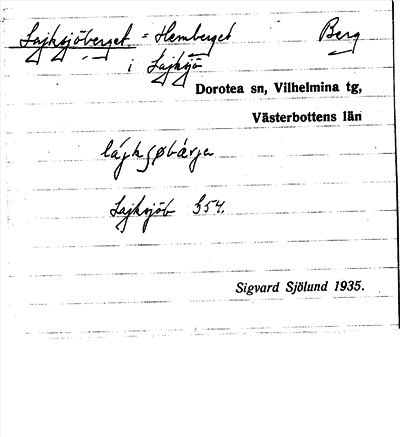 Lajksjöberget = Hemberget Berg
i Lajksjö
Dorotea sn, Vilhelmina tg,
Västerbottens län
lájkʃøbärja
Lajksjöb 554.
Sigvard Sjölund 1935.